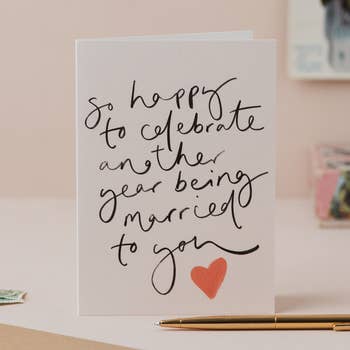 so happy
to celebrate
another
year being
married
to you